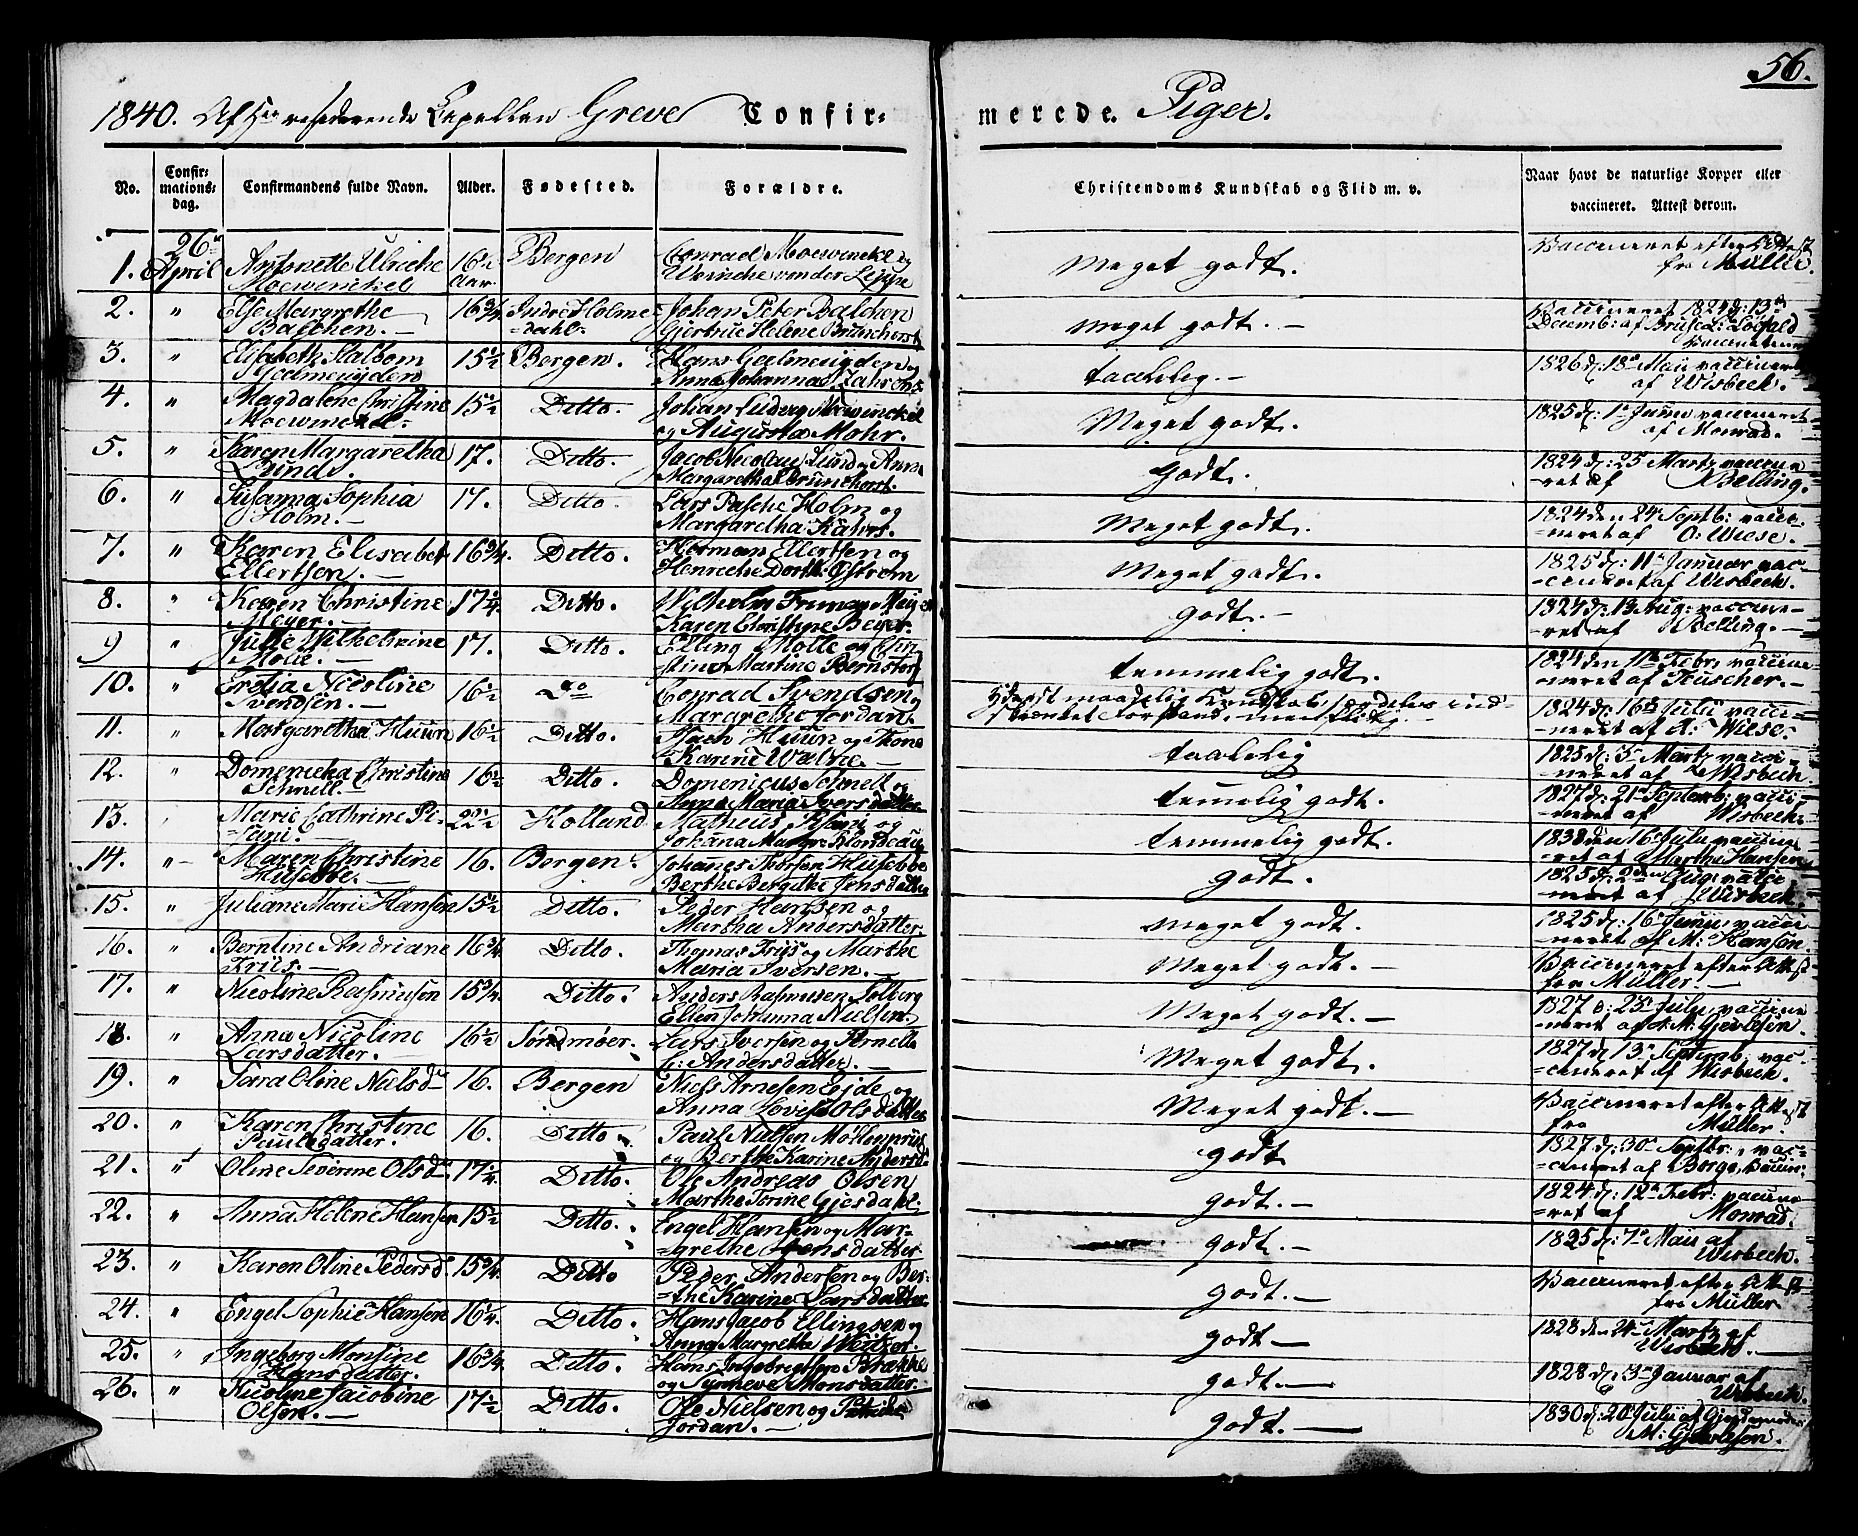 56.
1840. Af Hr residerende Capellan Greve Confir-
merede. Piger.
No. Confir-mations-dag. Confirmandens fulde Navn. Alder. Fødested. Forældre. Christendoms Kundskab og Flid m. v. Naar havt de naturlige Kopper eller vaccineret. Attest derom.
1. 26 April Antonette Ulricke Moewinckel 16½ Aar. Bergen Conrad Moewinckel og Wencke von der Lippe Meget godt. Vaccineret efter Attest fra Müller.
2. " Else Margrethe Balchen. 16¾ Indre Holme-dahl. Johan Peter Balchen Gjertrue Helene Brunchorst meget godt. Vaccineret 1824 d: 13 Decemb: af
3. " Elisabeth Stalbom Geelmeuyden 15½ Bergen. Hans Geelmeuyden og Anna Johanna Jahrens taalelig. 1826 d: 18 Mai vaccineret af Wisbech.
4. " Magdalene Christine Moewinckel. 15½ Ditto. Johan Ludvig Moewinckel og Augusta Mohr. Meget godt. 1825 d: 1 Juni vaccineret af Monrad.
5. " Karen Margaretha Lund. 17. Ditto. Jacob Nicolai Lund og Anna Margaretha Brunchorst. godt. 1824 d: 25 Martz vaccineret af Belling.
6. " Susanna Sophia Holm. 17. Ditto. Lars Pasche Holm og Margaretha Kahrs. Meget godt. 1824 den 24 Septb: vacci-neret af O: Wiese.
7. " Karen Elisabet Ellertsen. 16¾. Ditto. Herman Ellertsen og Henricke Dorth: Østrem Meget godt. 1825 d: 11 Januar vac-cineret af Wisbech.
8. " Karen Christine Meyer. 17¼ Ditto. Wilhelm Meyer Karen Christine Beyer. godt. 1824 d: 13 Aug: vaccine-ret af Belling.
9 " Julie Wilhelmine Molle. 17. Ditto. Elling Molle og Chri-stine Martine Bernstorf temmelig godt. 1824 den 11 Febr: vaccine-neret af Büscher.
10. " Nicoline Svendsen. 16½ Do Conrad Svendsen og Margrethe Jordan. Yderst maadelig Kundskab, særdeles ind-skrænket Forstand, men flidig. 1824 d: 16 Juli vacci-neret af A: Wiese.
11. " Margaretha Huun 16½ Ditto. Huun og Thone Karine Walvie taalelig 1825 d: 5 Martz vacci-neret af Wisbech
12. " Domenicha Christine Schnell. 16½ Ditto. Domenicus Schnell og Anna Maria Iversdatter temmelig godt. 1827 d: 21 Septemb: vacci-neret af Wisbech.
13. Marie Cathrine Pi-sani. 22½ Holland. Matheus Pisani og Johanna Margr: Blondeau temmelig godt. 1838 den 16 Juli vaccine-ret af Martha Hansen
14. " Maren Christine Husebøe. 16. Bergen. Johanes Thorsen Husebøe Berthe Bergitte Jensdatter godt. 1825 d: 2 Aug: vacci-neret af Wisbech.
15. " Juliane Marie Hansen 15½ Ditto. Peder Hansen og Martha Andersdatter meget godt. 1825 d: 16 Juni vacci-neret af M: Hansen.
16. " Berntine Andriane Friis. 16¾. Ditto. Thomas Friis og Marthe Maria Iversen. Meget godt. Vaccineret efter Attest fra Müller.
17. " Nicoline Rasmusen 15¾. Ditto. Anders Rasmusen Solberg Ellen Johanna Nielsen. Meget godt. 1827 d: 23 Juli vaccine-neret af M: Gjertsen.
18. " Anna Nicoline Larsdatter. 16½ Søndmøer. Lars Iversen og Pernelle C: Andersdatter. Meget godt. 1827 d 13 Septemb: vac-cineret af Wisbech.
19. " Sara Oline Nielsd. 16. Bergen Niels Arnesen Eide og Anna Lovise Olsdatter Meget godt. Vaccineret efter Attest fra Müller.
20. " Karen Christine Paulsdatter. 16. Ditto. Paul Nielsen Møllenpriis og Berthe Karine Andersd. godt 1827 d: 30 Septbr: vac-cineret af Borge, Vaccin:
21. " Oline Severine Olsd. 17¼. Ditto. Ole Andreas Olsen Marthe Serine Gjesdahl. godt. 1824 d: 12 Febr: vaccine-ret af Monrad.
22. " Anna Helene Hansen 15½ Ditto. Engel Hansen og Mar-grethe Jensdatter. godt. 1825 d: 7 Mai af Wisbech.
23. " Karen Oline Pedersd. 15¾. Ditto Peder Andersen og Ber-the Karine Larsdatter. godt. Vaccineret efter Attest fra Müller
24. " Engel Sophie Hansen 16¼. Ditto. Hans Jacob Ellingsen og Anna Margrethe godt 1828 den 24 Martz af Wisbech.
25. " Ingeborg Monsine Hansdatter. 16¾. Ditto. Hans Ingebrigtsen Brække og Synneve Monsdatter. godt. 1828 d: 3 Januar af Wisbech.
26. " Nicoline Jacobine Olsen. 17½ Ditto. Ole Nielsen og Jordan. godt. 1830 d: 20 Juli af M: Gjertsen.